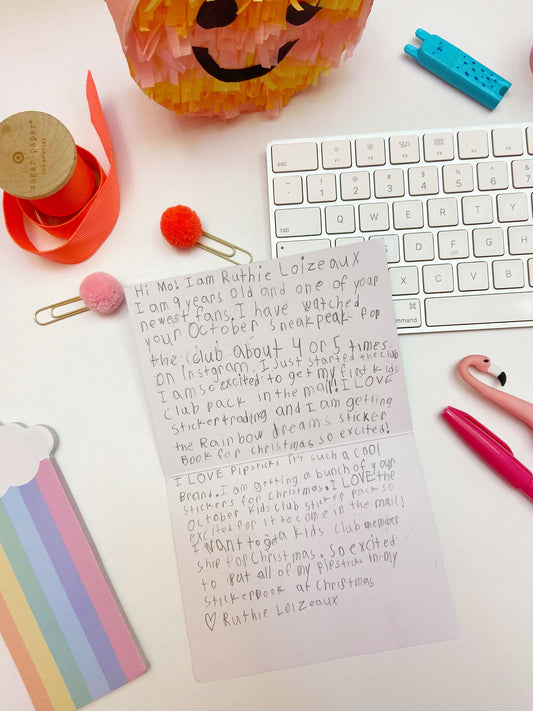 sugar paper
LOS ANGELES
esc
F1
F2
F3
F4
F5
F6
~
`
!
1
@
2
#
3
$
4
%
5
^
6
&
7
tab
Q
W
E
R
T
Y
U
D
F
G
H
X
C
V
B
N
⌘
command
Hi Mo! I am Ruthie Loizeaux
I am 9 years old and one of your
newest fans. I have watched
your October sneakpeak for
the club about 4 or 5 times
on Instgram. I Just started the club
I am so excited to get my first kids
club pack in the mail! I LOVE
Stickertrading and I am getting
the Rainbow dreams sticker
Book for christmas so excited!
I LOVE Pipsticks it's such a cool
Brand. I am getting a bunch of your
stickers for christmas. I LOVE the
October Kids club sticker pack so
excited for it to come in the mail!
I want to get a kids club member
ship for Christmas. So excited
to put all of my pipsticks in my
stickerbook at christmas
♡ Ruthie Loizeaux